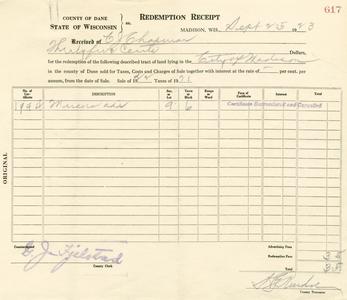 617
COUNTY OF DANE
STATE OF WISCONSIN } ss.
REDEMPTION RECEIPT
MADISON, WIS., Sept 25 1923
Received of C. Chapman
Thirty five Cents Dollars,
for the redemption of the following described tract of land lying in City of Madison
in the county of Dane sold for Taxes, Costs and Charges of Sale together with interest at the rate of per cent. per
annum, from the date of Sale. Sale of 22 Taxes of 21
No. of Certificate DESCRIPTION Sec. or Lot Town or Block Range or Ward Face of Certificate Interest Total
9 6 Certificate Surrendered and Canceled
ORIGINAL
Advertising Fees
Countersigned Redemption Fees 35
35
County Clerk
County Treasurer